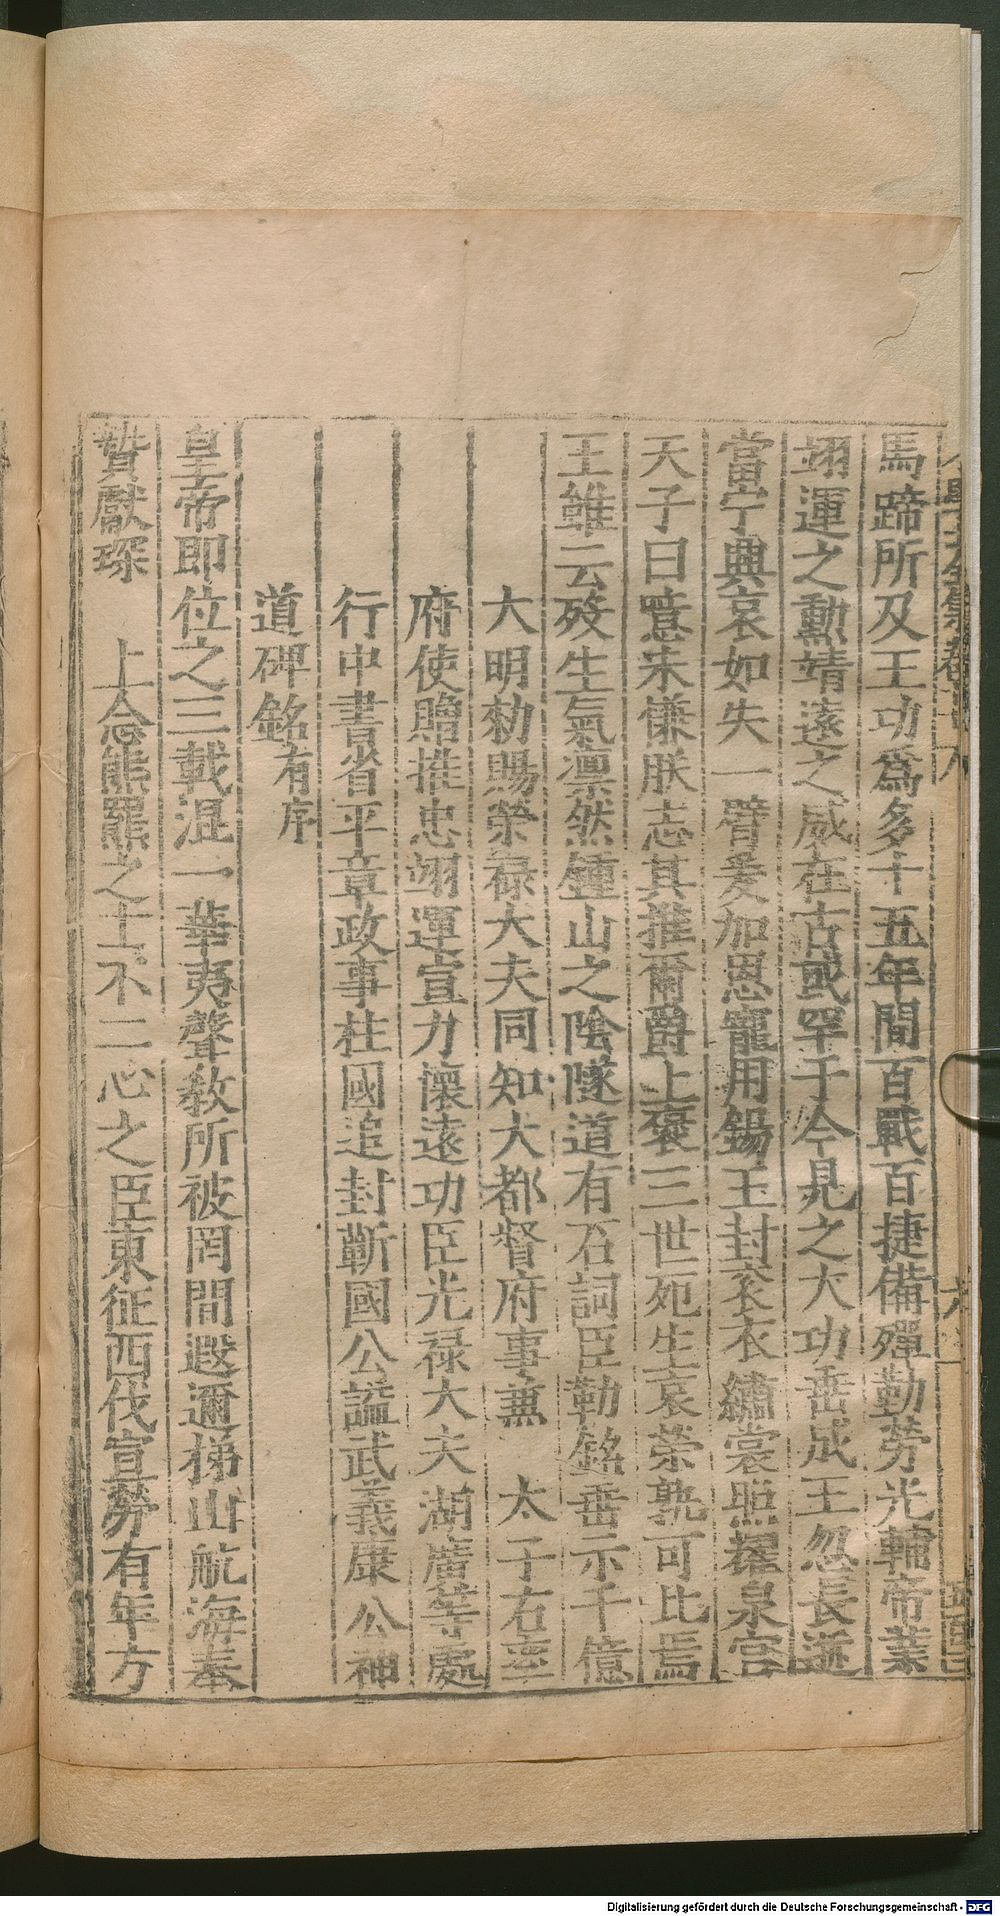 馬蹄所及王功爲多十五年間百戰百捷備殫勤勞光輔帝業
翊運之勳靖遠之威在古或罕于今見之大功垂成王忽長逝
當宁興哀如失一臂爰加恩寵用錫王封衮衣繡裳照耀泉宫
天子曰噫未慊朕志其推爾爵上褒三世死生哀榮孰可比焉
王雖云歿生氣凛然鍾山之陰隧道有石詞臣勒銘垂示千億
大明勑賜榮禄大夫同知大都督府事兼 太子右率
府使贈推忠翊運宣力懷遠功臣光禄大夫湖廣等處
行中書省平章政事柱國追封蘄國公謚武義康公神
道碑銘有序
皇帝即位之三載混一華夷聲敎所被罔間遐邇梯山航海奉
贄獻琛 上念熊羆之士不二心之臣東征西伐宣勞有年方
Digitalisierung gefördert durch die Deutsche Forschungsgemeinschaft - DFG